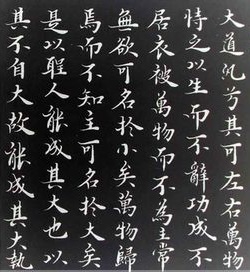 大道氾兮其可左右萬物
恃之以生而不辭功成不
居衣被萬物而不為主常
無欲可名於小矣萬物歸
焉而不知主可名於大矣
是以聖人能成其大也以
其不自大故能成其大執